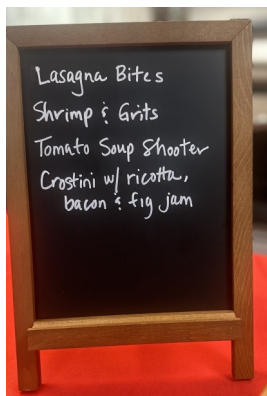 Lasagna Bites
Shrimp & Grits
Tomato Soup Shooter
Crostini w/ ricotta,
bacon & fig jam